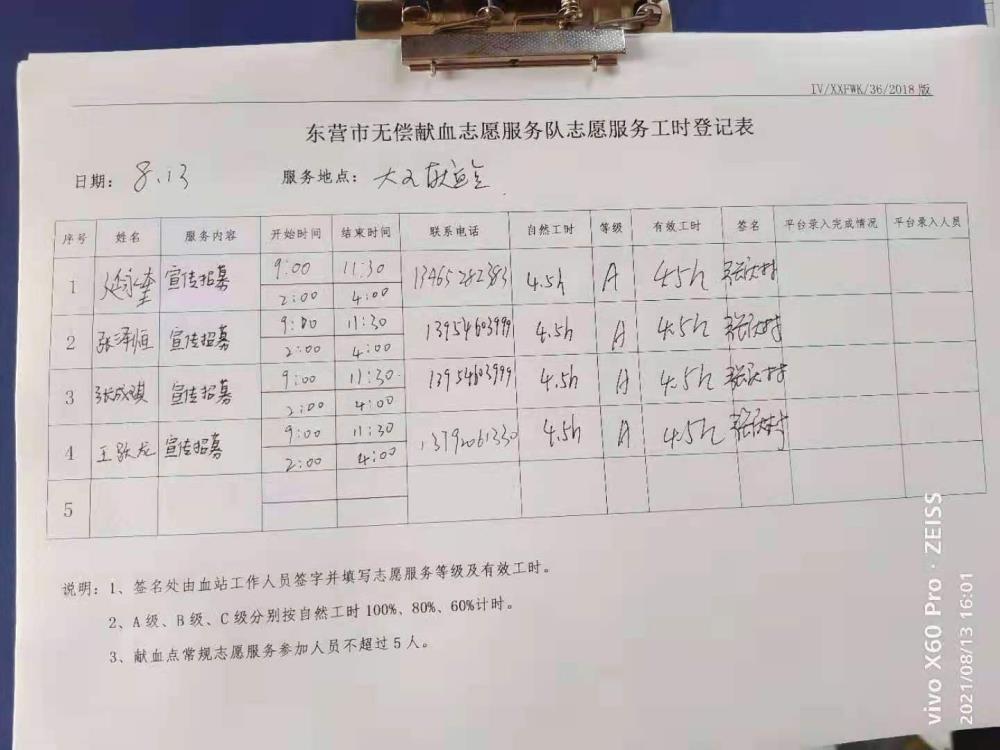 IV/XXFWK/36/2018版
东营市无偿献血志愿服务队志愿服务工时登记表
日期： 8.13 服务地点： 大王献血屋
序号 姓名 服务内容 开始时间 结束时间 联系电话 自然工时 等级 有效工时 签名 平台录入完成情况 平台录入人员
1 延永奎 宣传招募 9:00 11:30 13465282383 4.5h A 4.5h
2:00 4:00
2 张泽恒 宣传招募 9:00 11:30 13954603999 4.5h A 4.5h
2:00 4:00
3 张成琪 宣传招募 9:00 11:30 13954603999 4.5h A 4.5h
2:00 4:00
4 王跃龙 宣传招募 9:00 11:30 13792061330 4.5h A 4.5h
2:00 4:00
5
说明：1、签名处由血站工作人员签字并填写志愿服务等级及有效工时。
2、A级、B级、C级分别按自然工时100%、80%、60%计时。
3、献血点常规志愿服务参加人员不超过5人。
vivo X60 Pro · ZEISS
2021/08/13 16:01